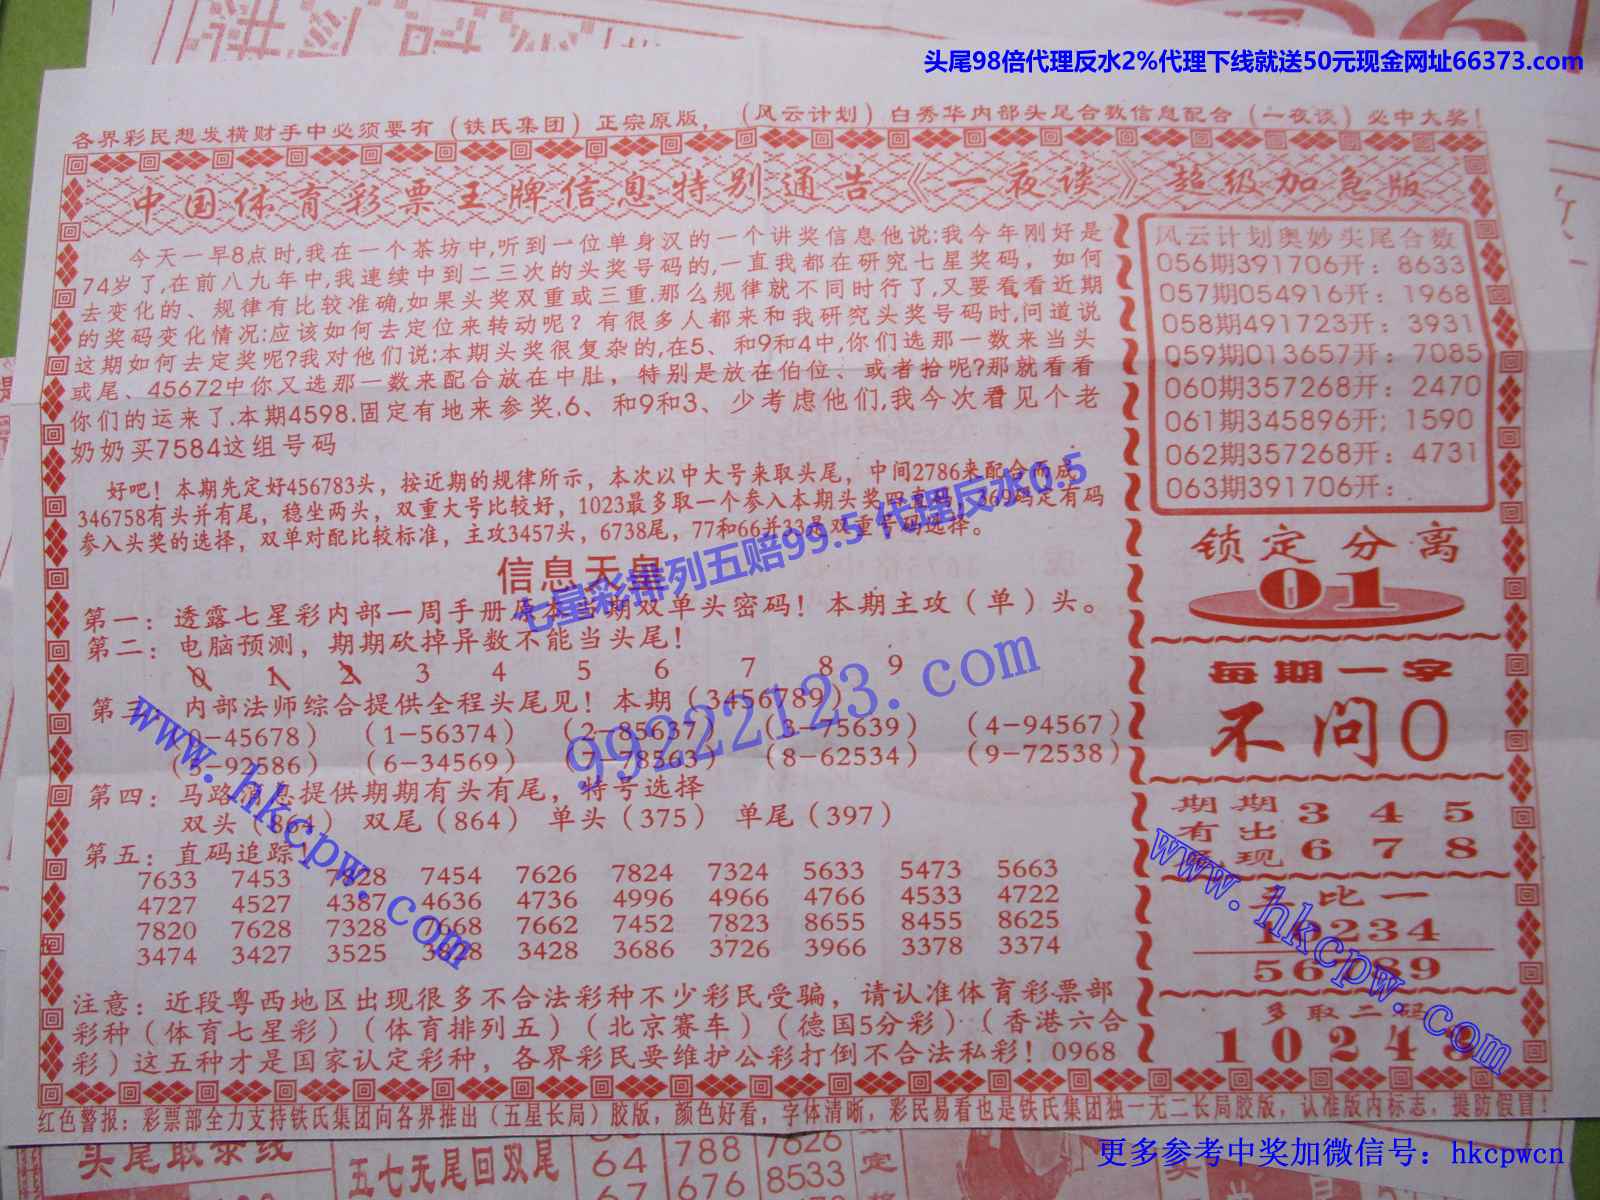 头尾98倍代理反水2%代理下线就送50元现金网址66373.com
各界彩民想发横财手中必须要有（铁氏集团）正宗原版，（风云计划）白秀华内部头尾合数信息配合（一夜谈）必中大奖！
中国体育彩票王牌信息特别通告《一夜谈》超级加急版
今天一早8点时,我在一个茶坊中,听到一位单身汉的一个讲奖信息他说:我今年刚好是
74岁了,在前八九年中,我連续中到二三次的头奖号码的,一直我都在研究七星奖码，如何
去变化的、规律有比较准确,如果头奖双重或三重.那么规律就不同时行了,又要看看近期
的奖码变化情况:应该如何去定位来转动呢？有很多人都来和我研究头奖号码时,问道说
这期如何去定奖呢?我对他们说:本期头奖很复杂的,在5、和9和4中,你们选那一数来当头
或尾、45672中你又选那一数来配合放在中肚，特别是放在伯位、或者拾呢?那就看看
你们的运来了.本期4598.固定有地来参奖.6、和9和3、少考虑他们,我今次看见个老
奶奶买7584这组号码
好吧！本期先定好456783头，按近期的规律所示，本次以中大号来取头尾，中间2786来配合而成
346758有头并有尾，稳坐两头，双重大号比较好，1023最多取一个参入本期头奖四 码，369码定有码
参入头奖的选择，双单对配比较标准，主攻3457头，6738尾，77和66并33是双重号码选择。
七星彩排列五赔99.5 代理反水0.5
信息天皇
第一：透露七星彩内部一周手册原本当期双单头密码！本期主攻（单）头。
第二：电脑预测，期期砍掉异数不能当头尾！
0 1 2 3 4 5 6 7 8 9
第三：内部法师综合提供全程头尾见！本期（3456789）
（0-45678）（1-56374）（2-85637）（3-75639）（4-94567）
（5-92586）（6-34569）（7-78563）（8-62534）（9-72538）
99222123.com
第四：马路消息提供期期有头有尾，特号选择
双头（864） 双尾（864） 单头（375） 单尾（397）
第五：直码追踪
7633 7453 7328 7454 7626 7824 7324 5633 5473 5663
4727 4527 4387 4636 4736 4996 4966 4766 4533 4722
7820 7628 7328 7668 7662 7452 7823 8655 8455 8625
3474 3427 3525 3828 3428 3686 3726 3966 3378 3374
www.hkcpw.com
注意：近段粤西地区出现很多不合法彩种不少彩民受骗，请认准体育彩票部
彩种（体育七星彩）（体育排列五）（北京赛车）（德国5分彩）（香港六合
彩）这五种才是国家认定彩种，各界彩民要维护公彩打倒不合法私彩！0968
风云计划奥妙头尾合数
056期391706开：8633
057期054916开：1968
058期491723开：3931
059期013657开：7085
060期357268开：2470
061期345896开；1590
062期357268开：4731
063期391706开：
锁定分离
01
每期一字
不问0
期期 3 4 5
有出
现 6 7 8
比一
234
56789
www.hkcpw.com
多取二码
10243
红色警报：彩票部全力支持铁氏集团向各界推出（五星长局）胶版，颜色好看，字体清晰，彩民易看也是铁氏集团独一无二长局胶版，认准版内标志，提防假冒！
五七无尾回双尾
64 788 7626
676 8533
更多参考中奖加微信号：hkcpwcn